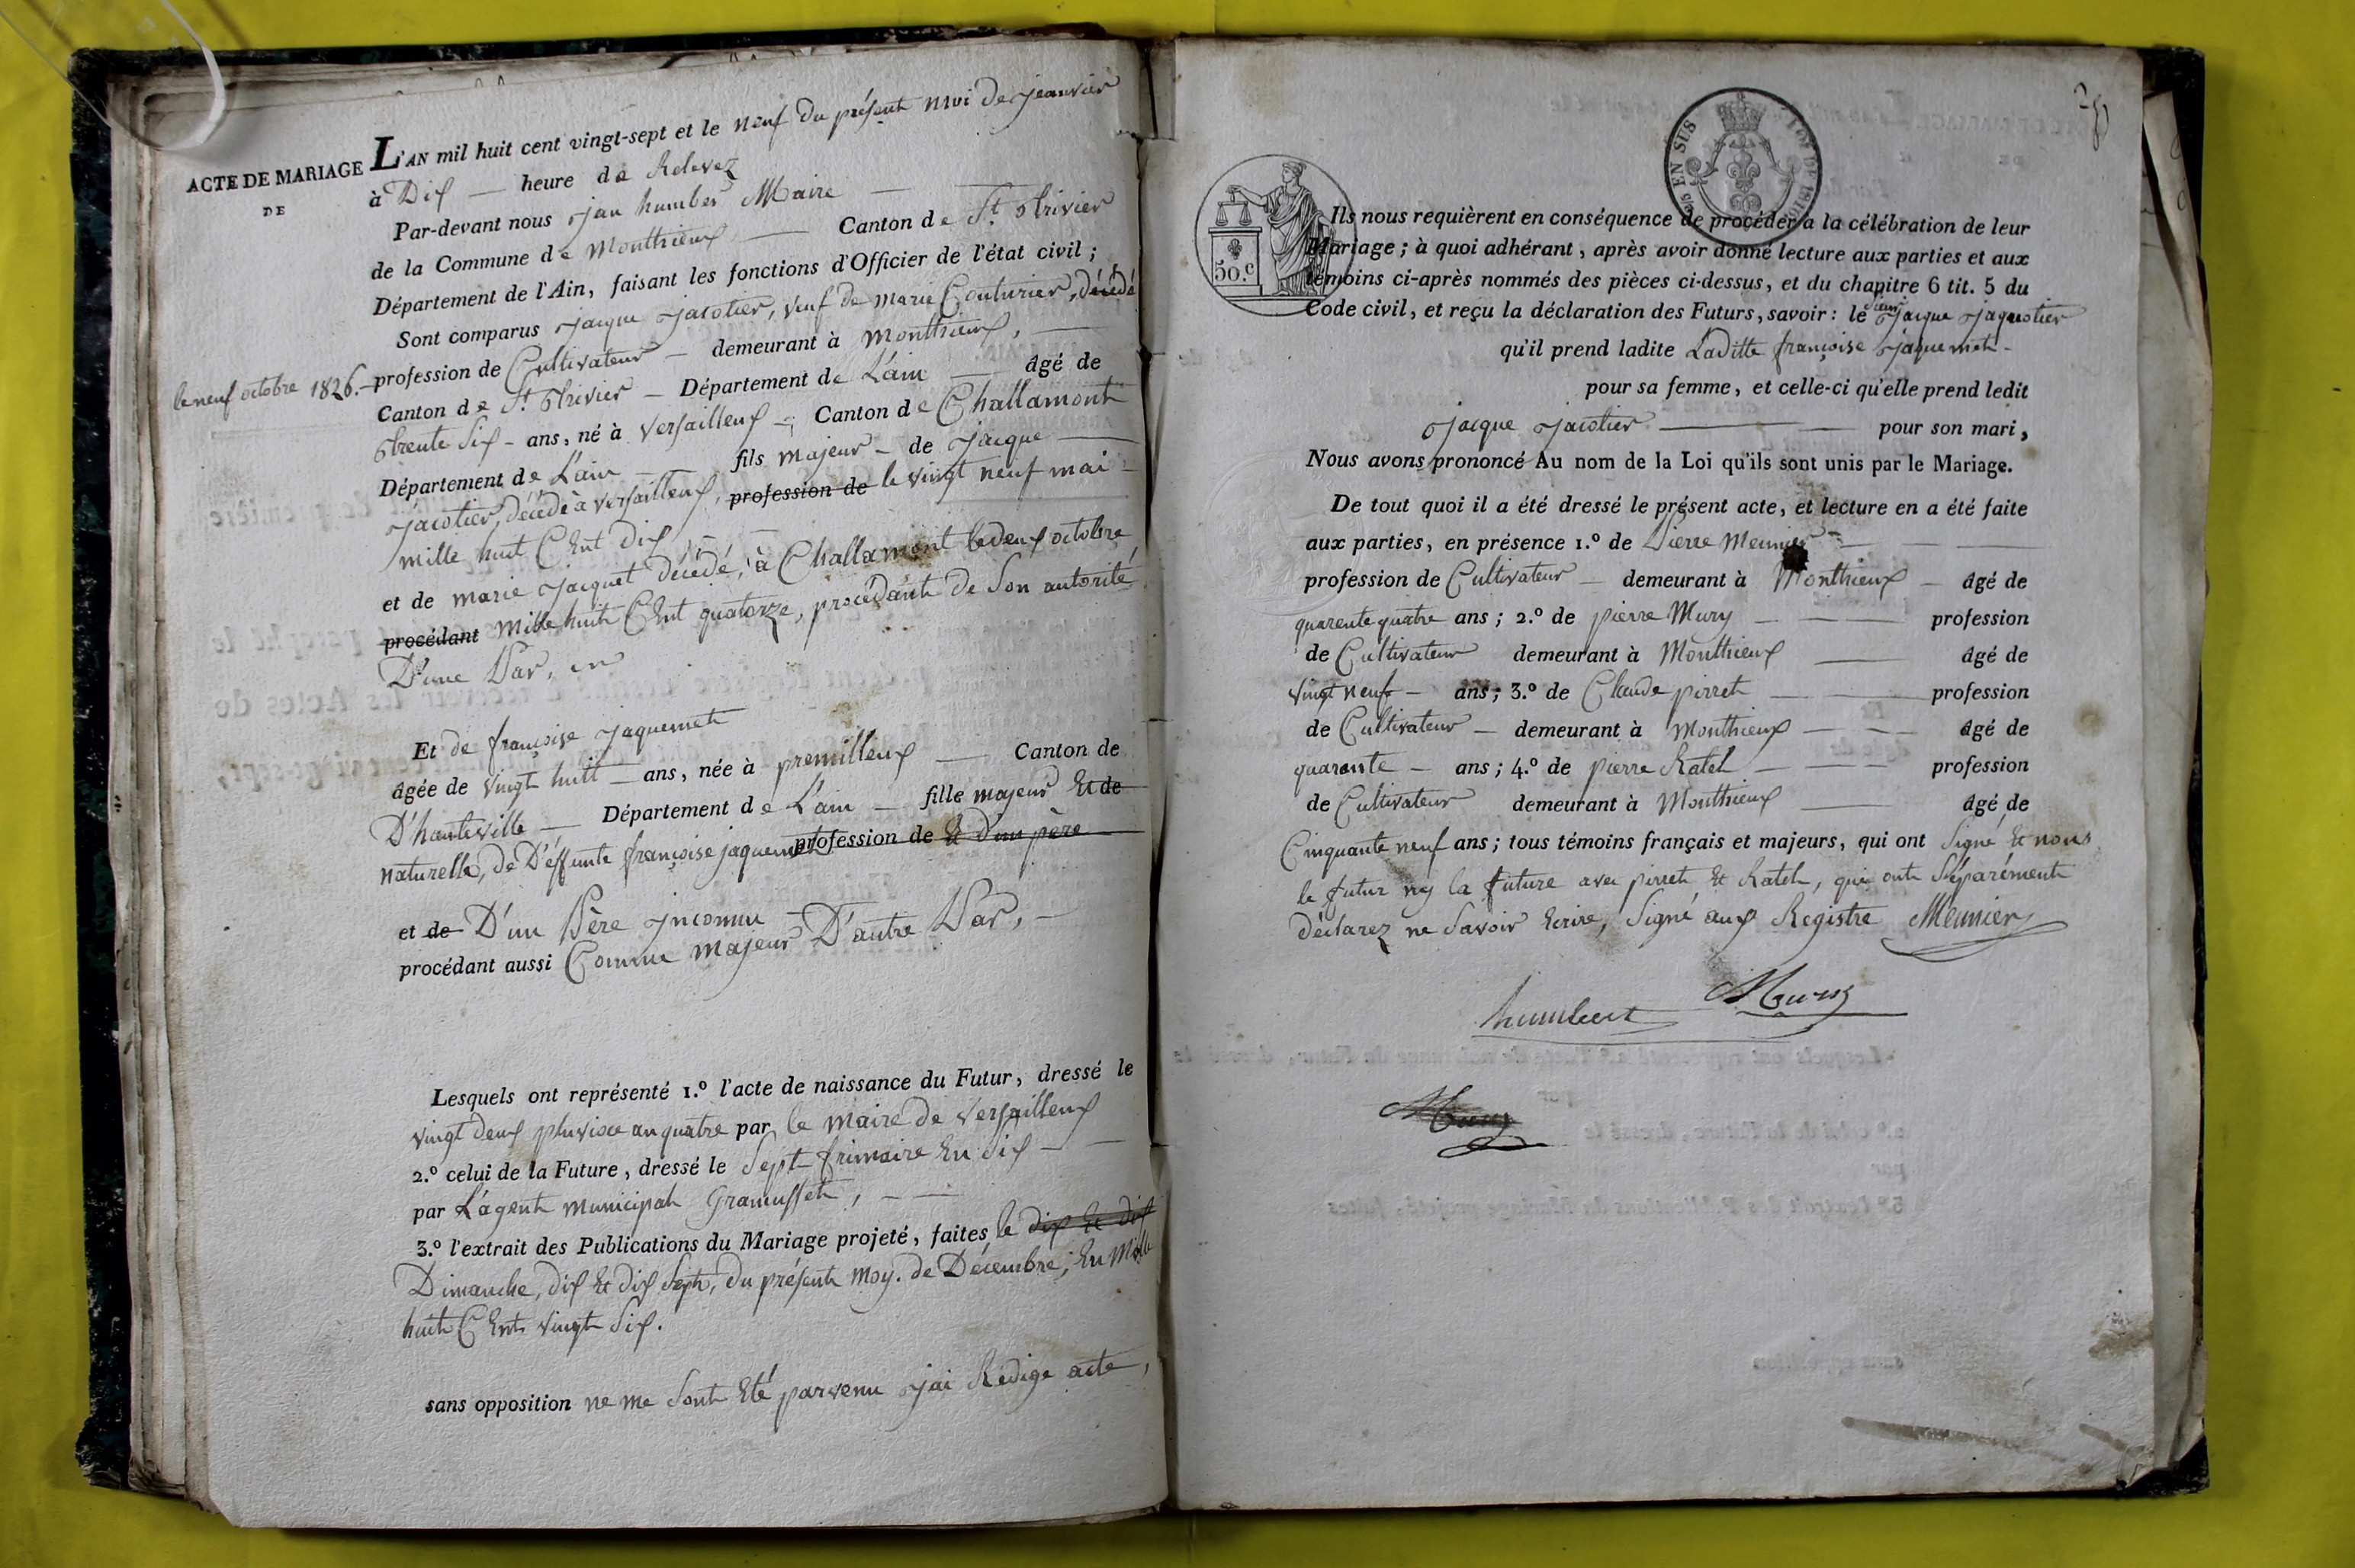 ACTE DE MARIAGE
DE
L'AN mil huit cent vingt-sept et le neuf du présent moi de jeanvier
à Dix — heure de Relevez
Par-devant nous jan humber Maire —
de la Commune de Monthieux — Canton de St. Trivier
Département de l'Ain, faisant les fonctions d'Officier de l'état civil ;
Sont comparus jacque jacotier, veuf de marie Couturier, décédé
le neuf octobre 1826. – profession de Cultivateur – demeurant à Monthieux, —
Canton de St. Trivier – Département de L'ain — âgé de
trente Six – ans, né à Versailleux – Canton de Challamont
Département de L'ain – fils majeur – de jacque —
jacotier, décédé à versailleux, profession de le vingt neuf mai –
mille huit Cent dix, –
et de marie jacquet décedé, à Challamont le deux octobre
procédant Mille huit Cent quatorze, procédant de Son autorité
D'une Par, en
Et de françoise jaquemet
âgée de vingt huit – ans, née à premilleux — Canton de
D'hauteville — Département de L'ain – fille majeur Et de
naturelle, de D'éffunte françoise jaquemet profession de Et d'un père
et de D'un Père jnconnu –
procédant aussi Comme majeur D'autre Par, –
Lesquels ont représenté 1.º l'acte de naissance du Futur, dressé le
vingt deux pluviose an quatre par le maire de versailleux
2.º celui de la Future, dressé le Sept frimaire En Six –
par L'agent municipal Gramusset, –
3.º l'extrait des Publications du Mariage projeté, faites le dix Et dix
Dimanche, dix Et dix Sept, du présent moy. de Décembre, En Mille
huit Cent vingt Six.
sans opposition ne me Sont Eté parvenu jai Rédige acte,
EN SUS
50.c
Ils nous requièrent en conséquence de procéder a la célébration de leur
Mariage ; à quoi adhérant, après avoir donné lecture aux parties et aux
témoins ci-après nommés des pièces ci-dessus, et du chapitre 6 tit. 5 du
Code civil, et reçu la déclaration des Futurs, savoir : le Sieur jacque jaquotier
qu'il prend ladite Laditte françoise jaquemet –
pour sa femme, et celle-ci qu'elle prend ledit
jacque jacotier — pour son mari,
Nous avons prononcé Au nom de la Loi qu'ils sont unis par le Mariage.
De tout quoi il a été dressé le présent acte, et lecture en a été faite
aux parties, en présence 1.º de Pierre Meunier —
profession de Cultivateur – demeurant à Monthieux – âgé de
quarente quatre ans ; 2.º de pierre Mury — profession
de Cultivateur demeurant à Monthieux — âgé de
vingt neuf – ans ; 3.º de Claude pirret — profession
de Cultivateur – demeurant à Monthieux — âgé de
quarante – ans ; 4.º de pierre Ratel — profession
de Cultivateur demeurant à Monthieux — âgé de
Cinquante neuf ans ; tous témoins français et majeurs, qui ont Signé Et nous
le futur ny la future avec pirret Et Ratel, qui ont Séparément
déclarez ne Savoir Ecrire, Signé aux Registre Meunier
humbert Mury
Mury